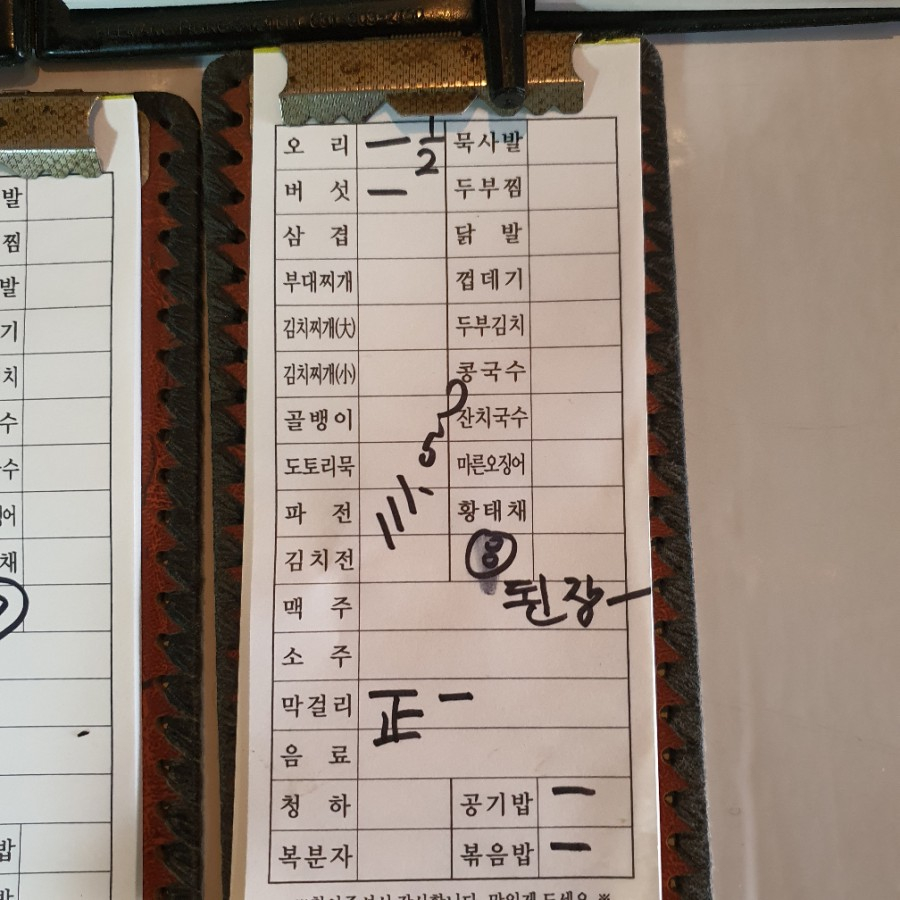 오 리 一 1/2 묵사발
버 섯 一 두부찜
삼 겹 닭 발
부대찌개 껍데기
김치찌개(大) 두부김치
김치찌개(小) 콩국수
골뱅이 잔치국수
도토리묵 마른오징어
파 전 황태채
김치전 8
맥 주 된장 一
소 주
막걸리 正 一
음 료
청 하 공기밥 一
복분자 볶음밥 一
발
찜
발
기
치
수
수
채
밥